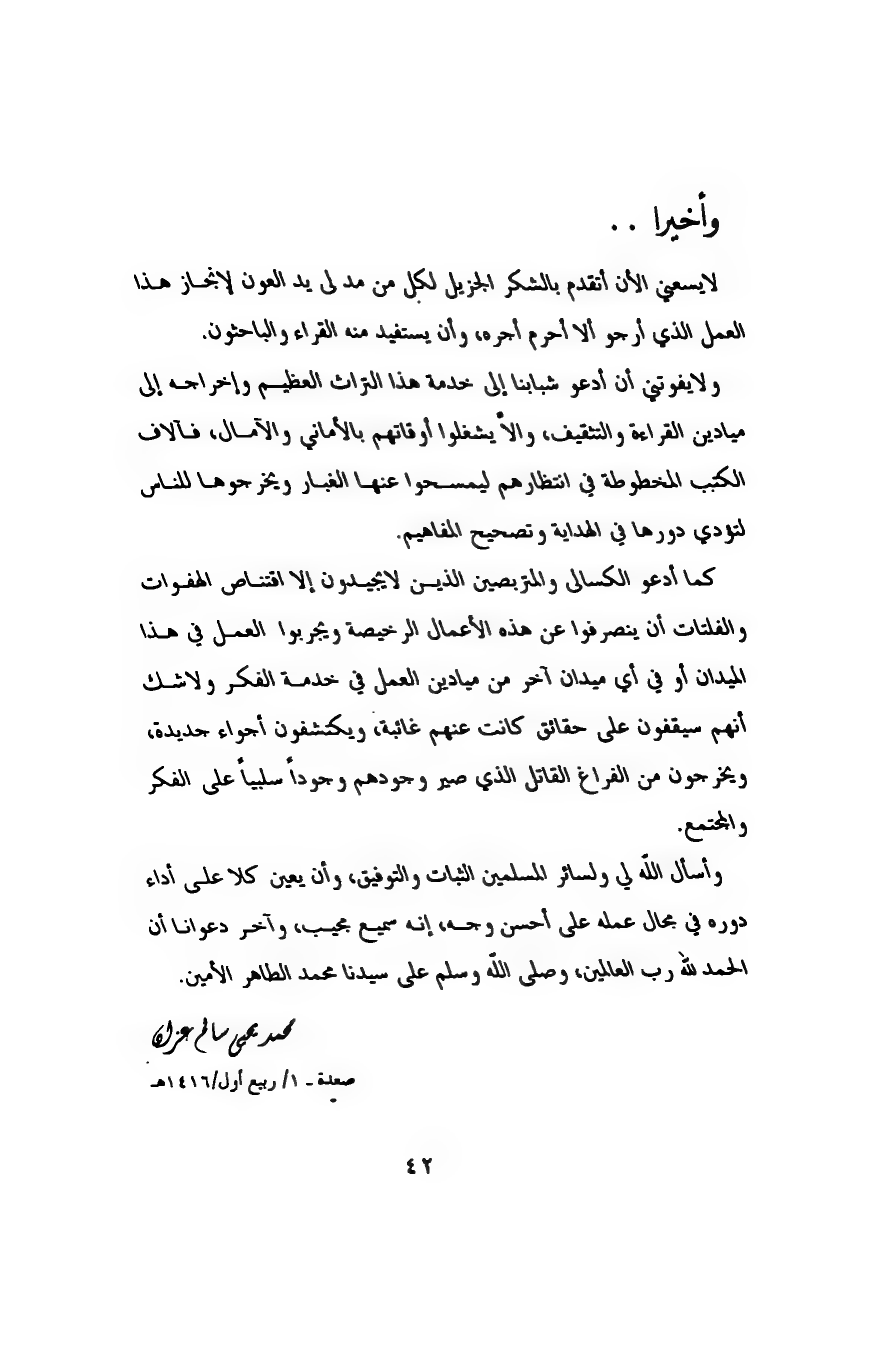 وأخيرا ..
لايسعني الأن أتقدم بالشكر الجزيل لكل من مد لي يد العون لإنجـاز هـذا
العمل الذي أرجو ألا أحرم أجره، وأن يستفيد منه القراء والباحثون.
ولايفوتني أن أدعو شبابنا إلى خدمة هذا التراث العظيـم وإخراجـه إلى
ميادين القراءة والتثقيف، والاً يشغلوا أوقاتهم بالأماني والآمـال، فـآلاف
الكتب المخطوطة في انتظارهم ليمسـحوا عنهـا الغبـار ويخرجوهـا للنـاس
لتؤدي دورها في الهداية وتصحيح المفاهيم.
كما أدعو الكسالى والمتربصين الذيـن لايجيـدون إلا اقتنـاص الهفـوات
والفلتات أن ينصرفوا عن هذه الأعمال الرخيصة ويجربوا العمـل في هـذا
الميدان أو في أي ميدان آخر من ميادين العمل في خدمـة الفكـر ولاشـك
أنهم سيقفون على حقائق كانت عنهم غائبة، ويكتشفون أجواء جديدة،
ويخرجون من الفراغ القاتل الذي صير وجودهم وجوداً سلبياً على الفكر
والمجتمع.
وأسأل الله لي ولسائر المسلمين الثبات والتوفيق، وأن يعين كلا علـى أداء
دوره في مجال عمله على أحسن وجـه، إنـه سميـع مجيـب، وآخـر دعوانـا أن
الحمد لله رب العالمين، وصلى الله وسلم على سيدنا محمد الطاهر الأمين.
محمد يحيى سالم عزان
صعدة ـ ١/ ربيع أول/١٤١٦هـ
٤٢